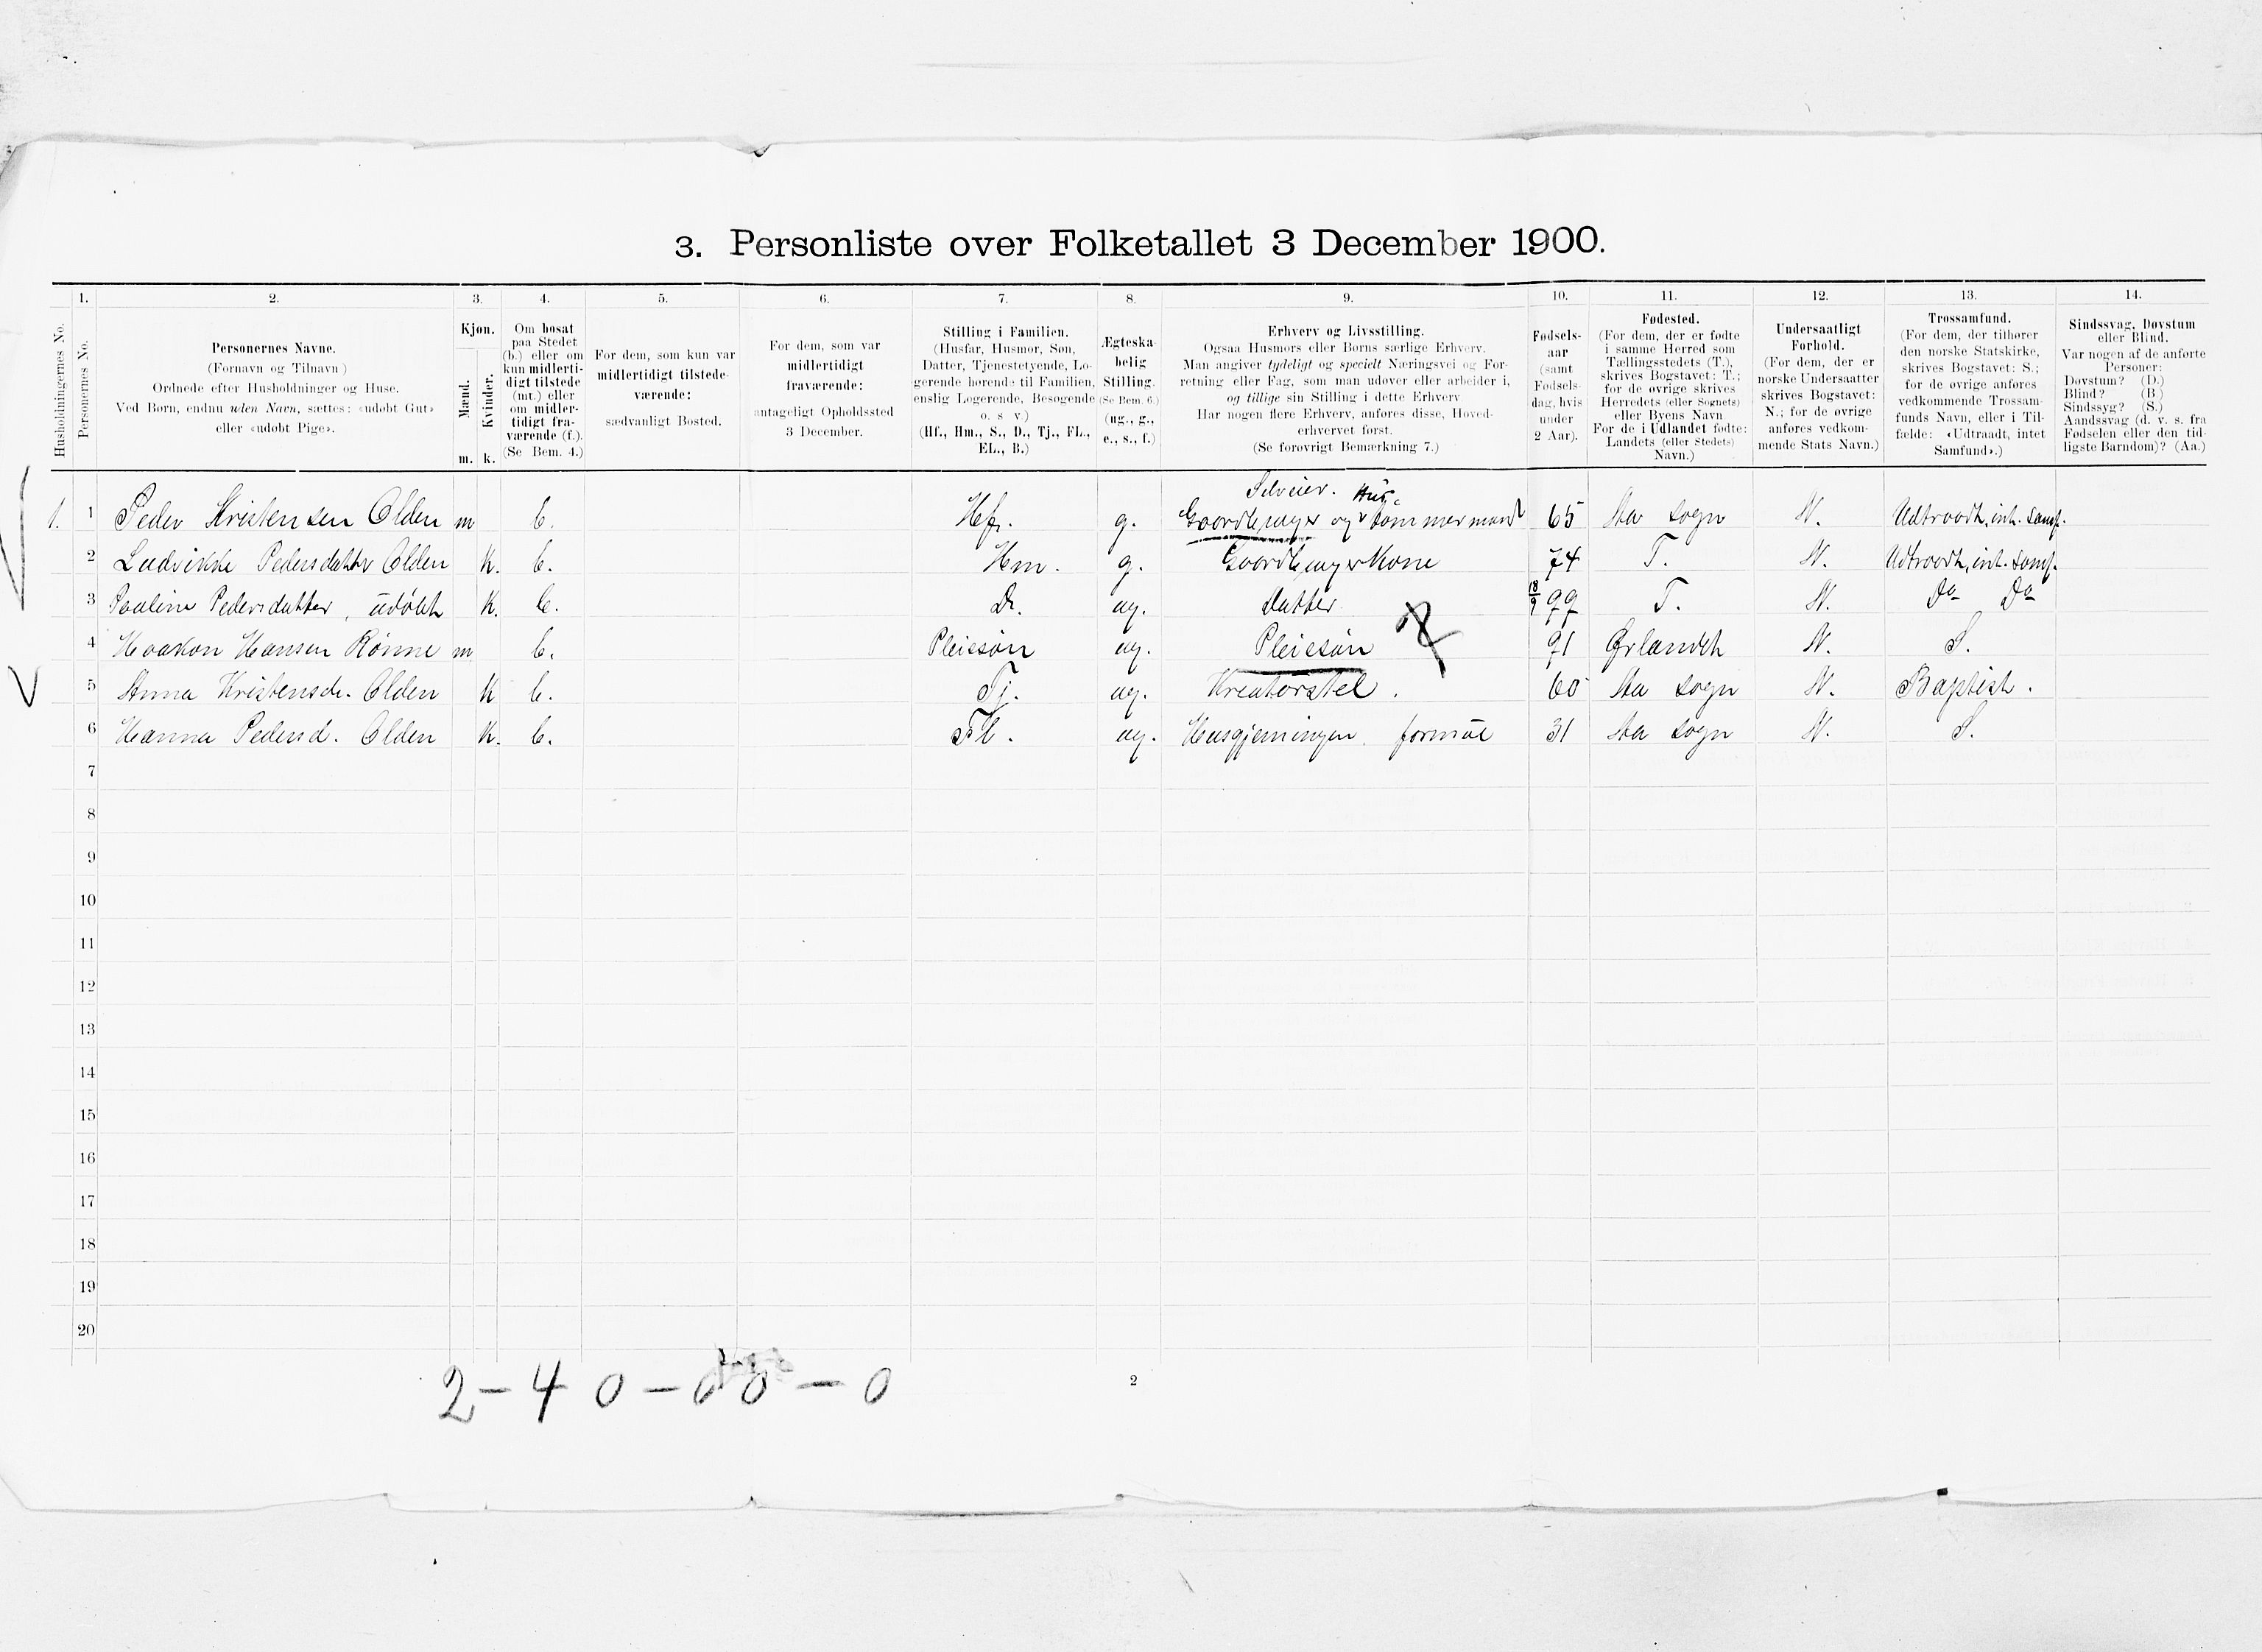 3. Personliste over Folketallet 3 December 1900.
Husholdningernes No.
1. Personernes No.
2. Personernes Navne.
(Fornavn og Tilnavn)
Ordnede efter Husholdninger og Huse.
Ved Børn, endnu uden Navn, sættes: «udøbt Gut»
eller «udøbt Pige».
3. Kjøn.
Mænd. Kvinder.
m. k.
4. Om bosat
paa Stedet
(b.) eller om
kun midlerti-
digt tilstede
(mt.) eller
om midler-
tidigt fra-
værende (f.).
(Se Bem. 4.)
5. For dem, som kun var
midlertidigt tilstede-
værende:
sædvanligt Bosted.
6. For dem, som var
midlertidigt
fraværende:
antageligt Opholdssted
3 December.
7. Stilling i Familien.
(Husfar, Husmor, Søn,
Datter, Tjenestetyende, Lo-
gerende hørende til Familien,
enslig Logerende, Besøgende
o. s v)
(Hf., Hm., S., D., Tj., FL.,
EL., B.)
8. Ægteska-
belig
Stilling.
(Se Bem. 6.)
(ug., g.,
e., s., f.)
9. Erhverv og Livsstilling.
Ogsaa Husmors eller Børns særlige Erhverv.
Man angiver tydeligt og specielt Næringsvei og For-
retning eller Fag, som man udøver eller arbeider i,
og tillige sin Stilling i dette Erhverv
Har nogen flere Erhverv, anføres disse, Hoved-
erhvervet først.
(Se forøvrigt Bemærkning 7.)
10. Fødsels-
aar
(samt
Fødsels-
dag, hvis
under
2 Aar).
11. Fødested.
(For dem, der er fødte
i samme Herred som
Tællingsstedets (T.),
skrives Bogstavet: T.;
for de øvrige skrives
Herredets (eller Sognets)
eller Byens Navn
For de i Udlandet fødte:
Landets (eller Stedets)
Navn.)
12. Undersaatligt
Forhold.
(For dem, der er
norske Undersaatter
skrives Bogstavet:
N.; for de øvrige
anføres vedkom-
mende Stats Navn.)
13. Trossamfund.
(For dem, der tilhører
den norske Statskirke,
skrives Bogstavet: S.;
for de øvrige anføres
vedkommende Trossam-
funds Navn, eller i Til-
fælde: «Udtraadt, intet
Samfund».)
14. Sindssvag, Døvstum
eller Blind.
Var nogen af de anførte
Personer:
Døvstum? (D.)
Blind? (B.)
Sindssyg? (S.)
Aandssvag (d. v. s. fra
Fødselen eller den tid-
ligste Barndom)? (Aa.)
Selveier. Hus
1. 1 Peder Kristensen Olden m b. Hf. g. Gaardbruger og tømmermand 65 Sta sogn N. Udtraadt, int. samf.
2 Ludvikke Pedersdatter Olden k. b. Hm. g. Gaardbrugerkone 74 T. N. Udtraadt, int. samf.
3 Pauline Pedersdatter, udøbt k. b. D. ug. Datter 18/9 99 T. N. Do Do
4 Haakon Hansen Rønne m b. Pleiesøn ug. Pleiesøn 91 Ørlandet N. S.
5 Anna Kristensd. Olden k b. Tj. ug. Kreaturstel. 60 Sta sogn N. Baptist.
6 Hanna Pedersd. Olden k. b. FL. ug. Husgjerningen. formue 31 Sta sogn N. S.
7
8
9
10
11
12
13
14
15
16
17
18
19
20
2 - 4 0 - 0 0 - 0
2